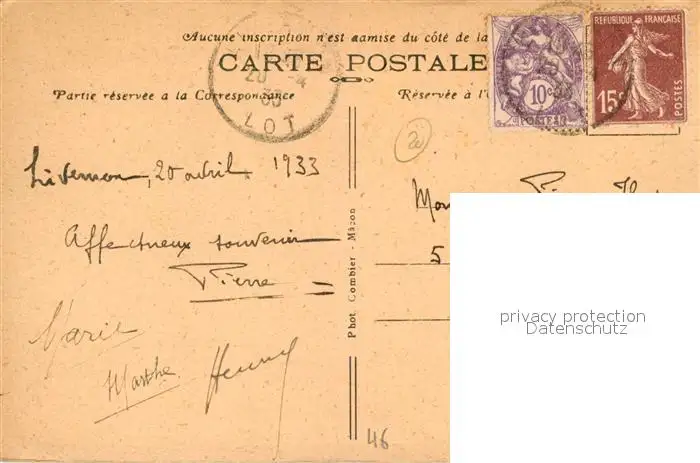 Aucune inscription n'est admise du côté de la
CARTE POSTALE
Partie réservée a la Correspondance
Réservée à l'
20 -4
33
LOT
10c
POSTES
REPUBLIQUE FRANÇAISE
15c
POSTES
Livernon, 20 avril 1933
Affectueux souvenir
Pierre
Marie
Marthe
Henry
Phot. Combier - Mâcon
5
46
privacy protection
Datenschutz